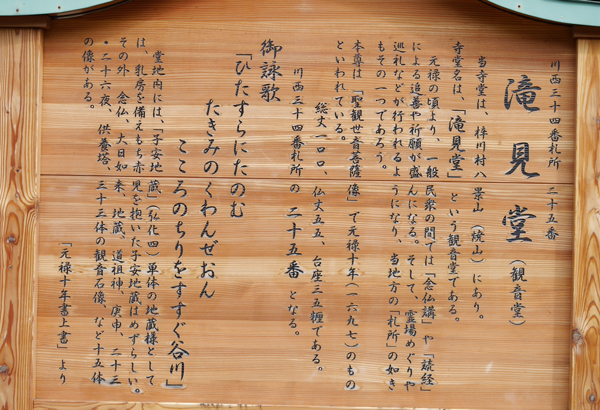 川西三十四番札所 二十五番
滝見堂(観音堂)
当寺堂は、梓川村八景山(焼山)にあり。
寺堂名は、「滝見堂」という観音堂である。
元禄の頃より、一般民衆の間では「念仏講」や「読経」
による追善や祈願が盛んになる。そして、霊場めぐりや
巡礼などが行われるようになり、当地方の「札所」の如き
もその一つであろう。
本尊は「聖観世音菩薩像」で元禄十年(一六九七)のもの
といわれている。
総丈一〇〇、仏丈五五、台座三五糎である。
川西三十四番札所の 二十五番 となる。
御詠歌
「ひたすらにたのむ
たきみのくわんぜおん
こころのちりをすすぐ谷川」
堂地内には、「子安地蔵」(弘化四)単体の地蔵様として
は、乳房を備えもち赤児を抱いた子安地蔵はめずらしい。
その外、念仏、大日如来、地蔵、道祖神、庚申、二十三
・二十六夜、供養塔、三十三体の観音石像、など十五体
の像がある。
「元禄十年書上書」より